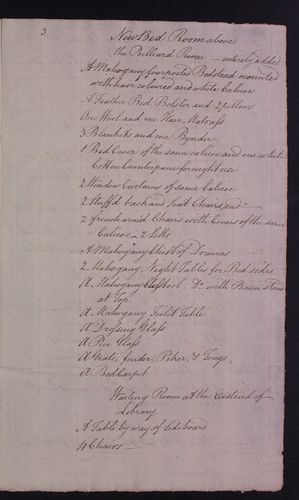 3
New Bed Room above
the Billiard Room — entirely added
A Mahogany four posted Bedstead mounted
with hair coloured and white Calicoe
A Feather Bed Bolster and 2 pillows
One Wool and one Hair Matrass
3 Blankets and one Bynder
1 Bed Cover of the same calicoe and one white
Cotton Counterpane for night use
2 Window Curtains of same Calicoe
2 Stuff'd back and seat Chairs, and
2 french armd Chairs with Covers of the same
Calicoe —
A Mahogany Chest of Drawers
2 Mahogany Night Tables for Bed sides
A Mahogany Do. with Bason Stand
at Top
A Mahogany Toilet Table
A Dressing Glass
A Pier Glass
A Grate, fender, Poker, & Tongs,
A Bed Carpet
Waiting Room at the East end of
Library
A Table by way of sideboard
4 Chairs —